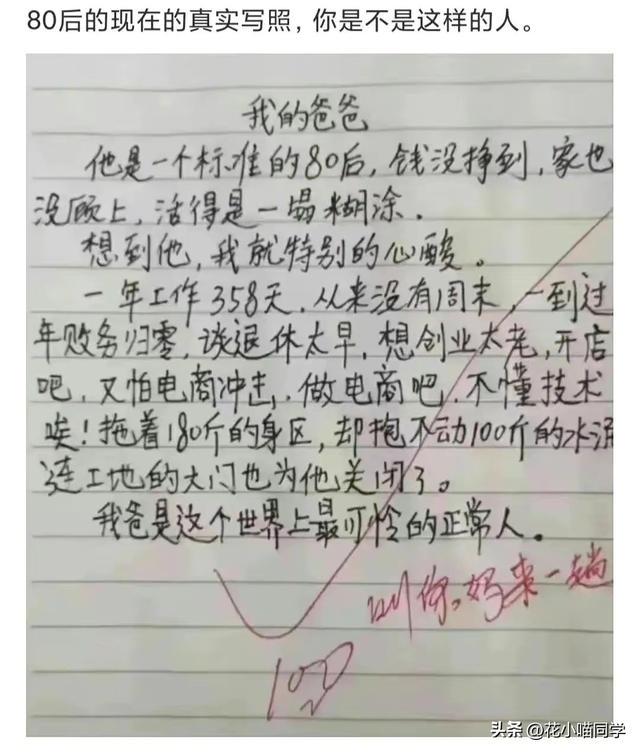 80后的现在的真实写照，你是不是这样的人。
我的爸爸
他是一个标准的80后，钱没挣到，家也
没顾上，活得是一塌糊涂．
想到他，我就特别的心酸。
一年工作358天，从来没有周末，一到过
年财务归零，谈退休太早，想创业太老，开店
吧，又怕电商冲击，做电商吧，不懂技术
唉！拖着180斤的身区，却抱不动100斤的水泥
连工地的大门也为他关闭了。
我爸是这个世界上最可怜的正常人。
叫你妈来一趟
100
头条 @花小喵同学